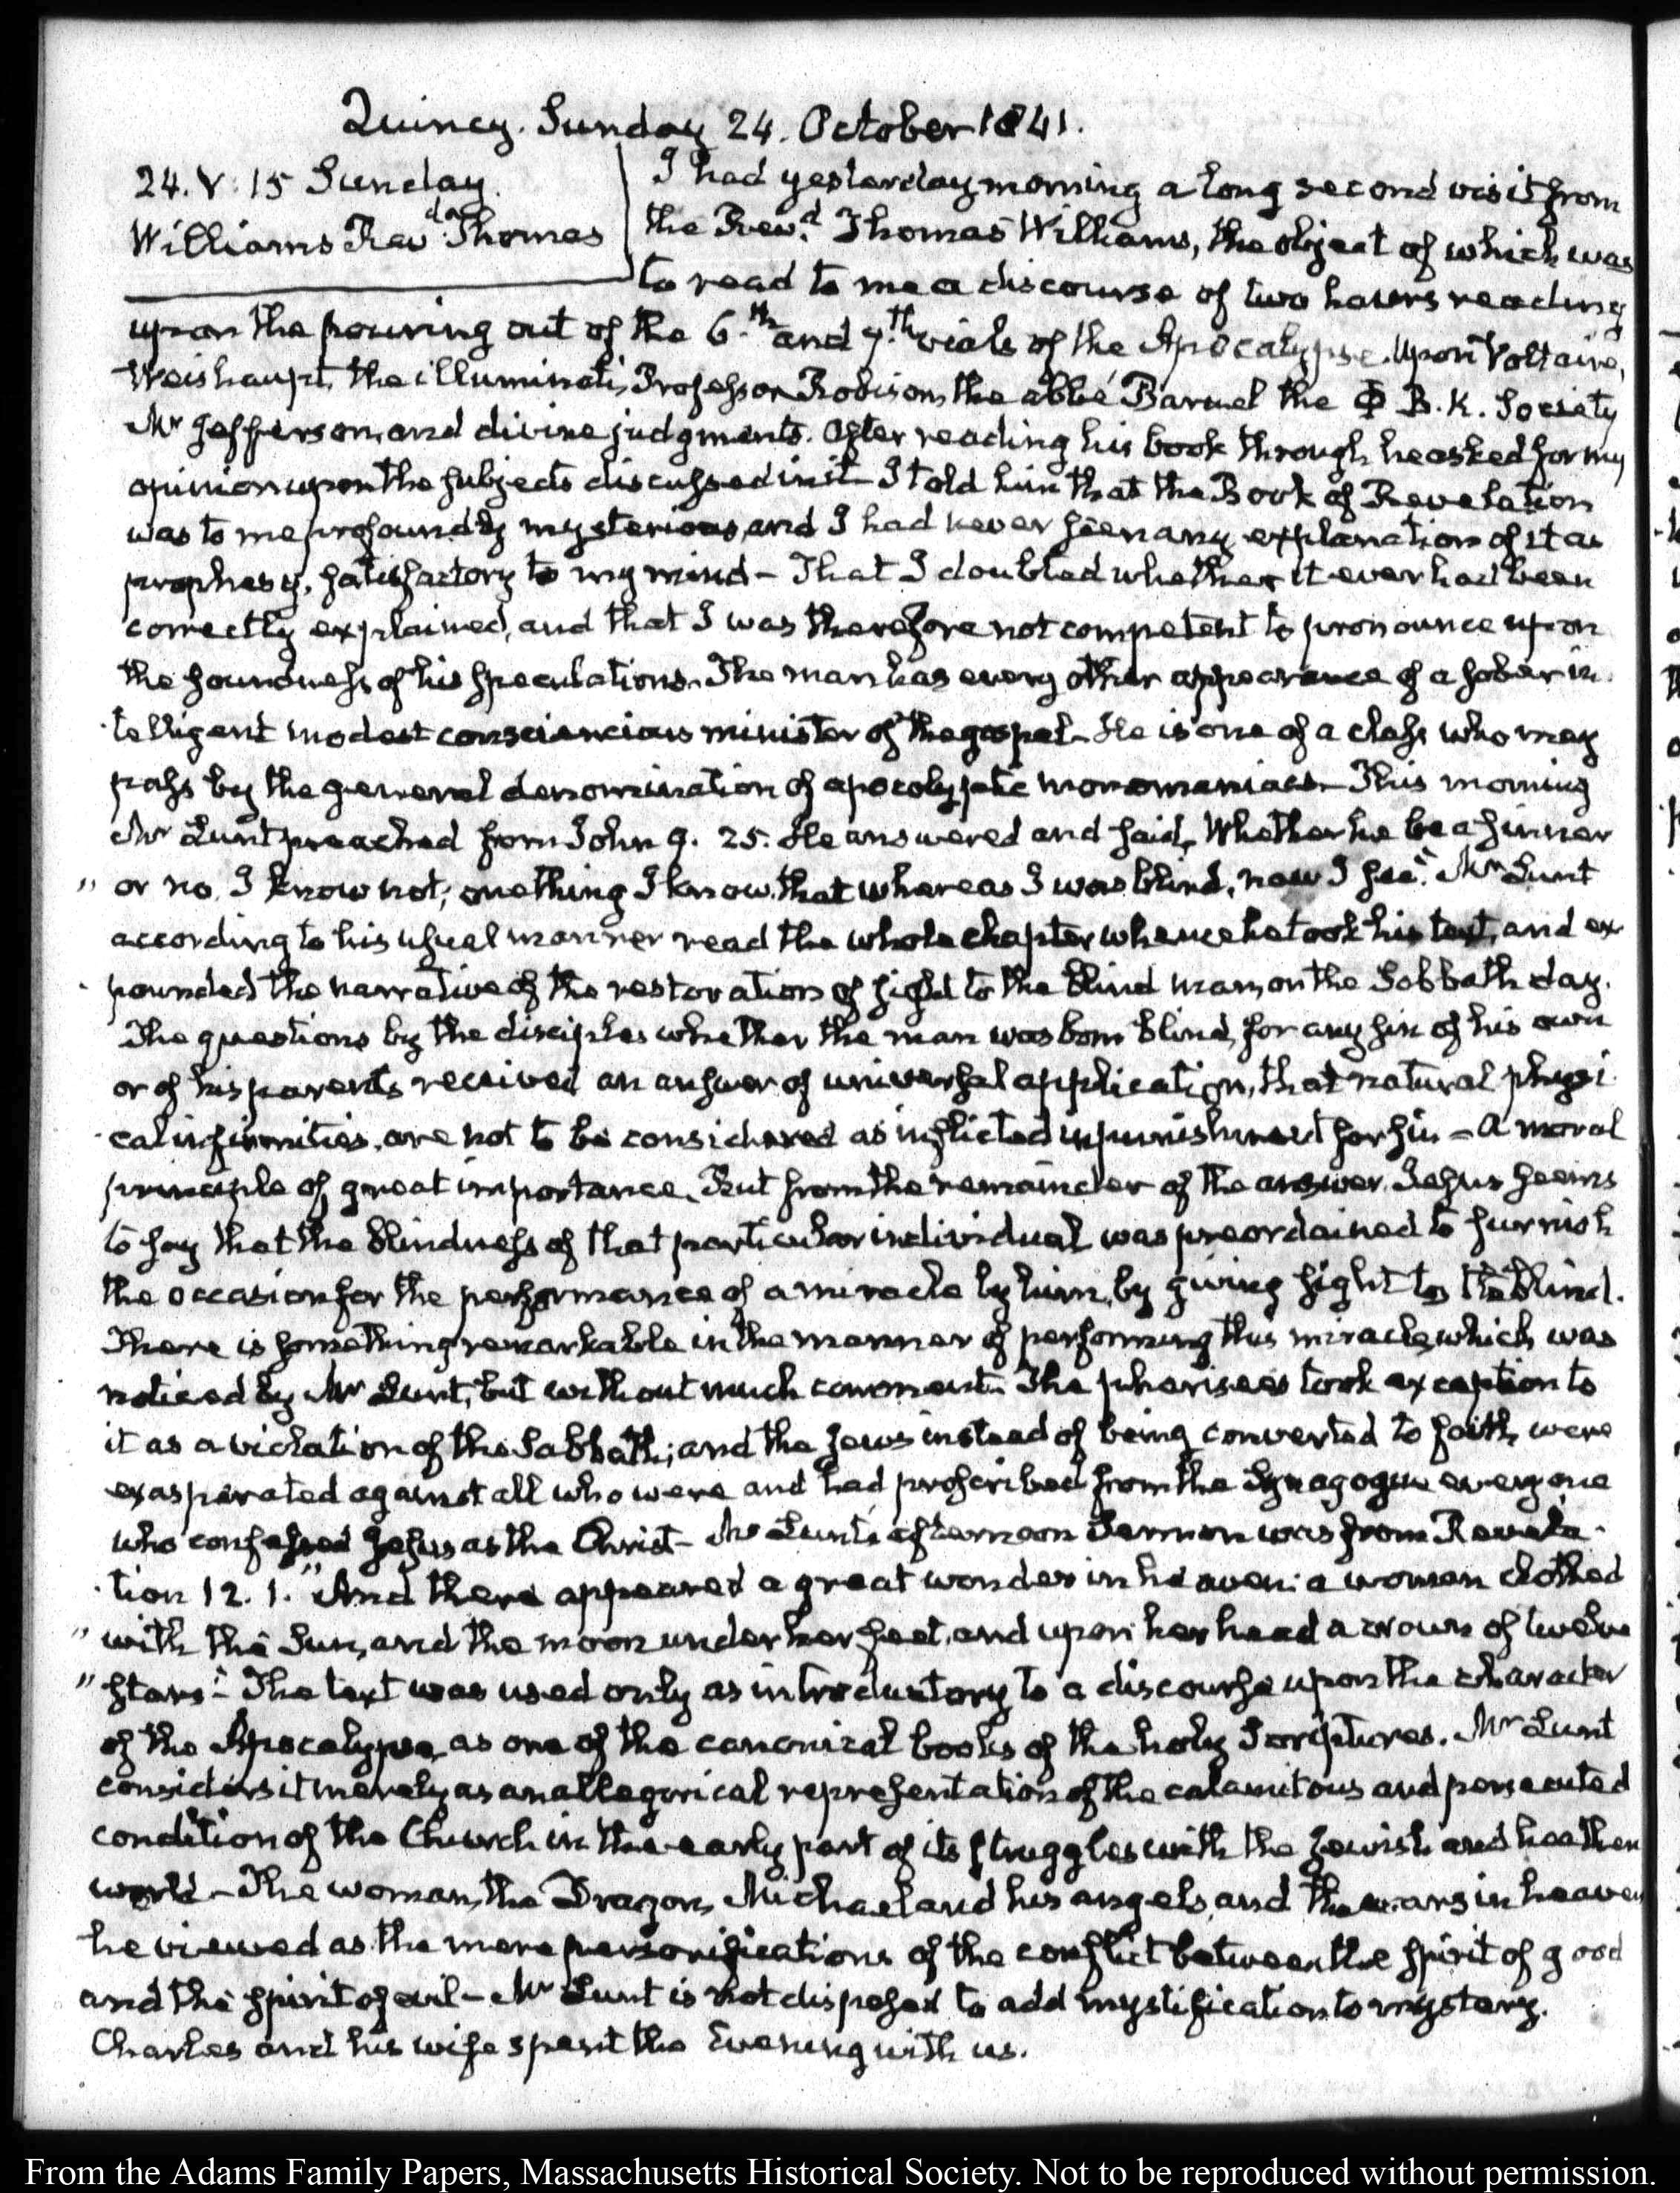 Quincy. Sunday 24. October 1841.
24. V: 15 Sunday.
Williams Revd Thomas
I had yesterday morning a long second visit from
the Revd. Thomas Williams, the object of which was
to read to me a discourse of two hours reading
upon the pouring out of the 6.th and 7.th vials of the Apocalypse. Upon Voltaire,
Weishaupt, the illuminati, Professor Robison, the abbé Barruel the Φ B. K. Society
Mr Jefferson, and divine judgments. After reading his book through he asked for my
opinion upon the subjects discussed in it. I told him that the Book of Revelation
was to me profoundly mysterious, and I had never seen any explanation of it as
prophesy, satisfactory to my mind - That I doubted whether it ever had been
correctly explained, and that I was therefore not competent to pronounce upon
the soundness of his speculations. The man has every other appearance of a sober in-
telligent modest consciencious minister of the gospel. He is one of a class who may
pass by the general denomination of apocolyptic monomaniacs - This morning
Mr Lunt preached from John 9. 25. He answered and said, Whether he be a sinner
" or no, I know not; one thing I know, that whereas I was blind, now I see." Mr Lunt
according to his usual manner read the whole chapter whence he took his text, and ex-
pounded the narrative of the restoration of sight to the blind man, on the Sabbath day.
The questions by the disciples whether the man was born blind, for any sin of his own
or of his parents received an answer of universal application, that natural physi-
cal infirmities, are not to be considered as inflicted in punishment for sin - A moral
principle of great importance. But from the remainder of the answer, Jesus seems
to say that the blindness of that particular individual was preordained to furnish
the occasion for the performance of a miracle by him, by giving sight to the blind.
There is something remarkable in the manner of performing this miracle, which was
noticed by Mr Lunt, but without much comment. The pharisees took exception to
it as a violation of the Sabbath; and the Jews instead of being converted to faith, were
exasperated against all who were and had proscribed from the Synagogue every one
who confessed Jesus as the Christ - Mr Lunt's afternoon Sermon was from Revela-
tion 12. 1. "And there appeared a great wonder in heaven: a woman clothed
" with the Sun, and the moon under her feet, and upon her head a crown of twelve
" stars" - The text was used only as introductory to a discourse upon the character
of the Apocalypse, as one of the canonical books of the holy Scriptures. Mr Lunt
considers it merely as an allegorical representation of the calamitous and persecuted
condition of the Church in the early part of its struggles with the Jewish and heathen
world - The woman, the Dragon, Michael and his angels, and the wars in heaven
he viewed as the mere personifications of the conflict between the spirit of good
and the spirit of evil - Mr Lunt is not disposed to add mystification to mystery.
Charles and his wife spent the Evening with us.
From the Adams Family Papers, Massachusetts Historical Society. Not to be reproduced without permission.